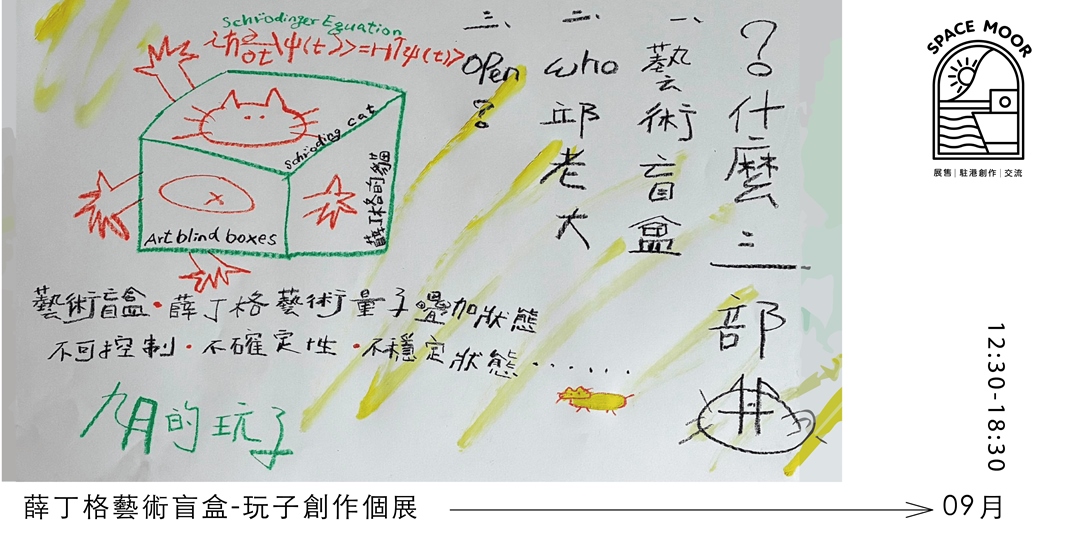 Schrödinger Equation
iħ∂/∂t|ψ(t)>=Ĥψ(t)>
Schröding cat
薛丁格的貓
Art blind boxes
？什麼三部井
一、藝術盲盒
二、who邱老大
三、open？
藝術盲盒・薛丁格藝術量子疊加狀態
不可控制・不確定性・不穩定狀態......
九月的玩子
SPACE MOOR
展售｜駐港創作｜交流
12:30-18:30
薛丁格藝術盲盒-玩子創作個展
09月